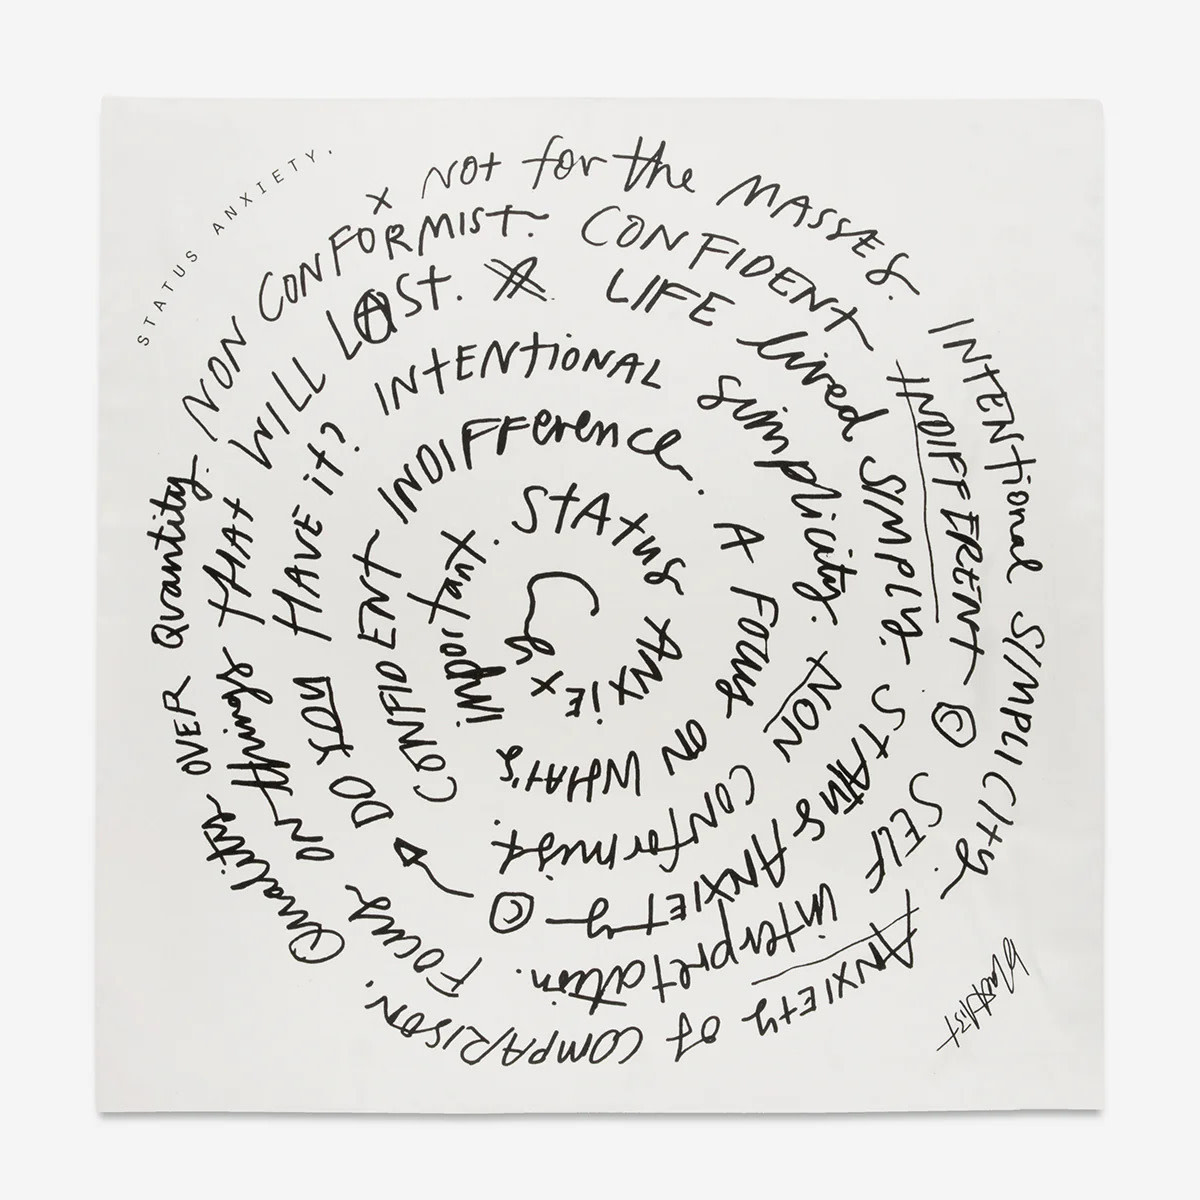 STATUS ANXIETY.
x NOt for the MASSES. INTENtional SIMPLICIty. ANXIEty of COMPARISON. Quality OVER Quantity.
NON CONFORMIST. CONFIDENT INDIFFERENT © SELF interpretation. Focus ON things tHAt WILL LASt.
LIFE lived SIMPLY. StAtuS ANXIEty © DO YOU HAVE it?
INtENtIONAL simplicity. NON conformist. CONFIDENT INDIFFerence.
A FOCUS ON WHAt's important.
StAtuS ANXIEty x